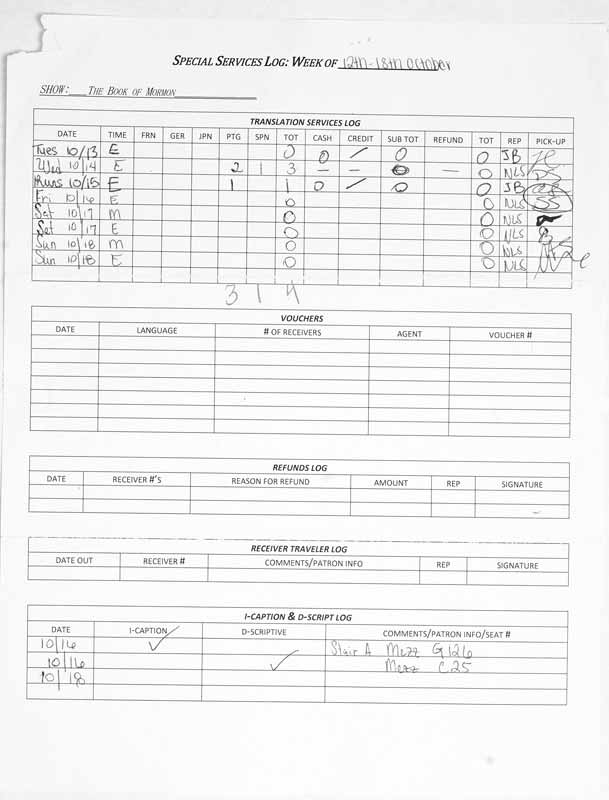 SPECIAL SERVICES LOG: WEEK OF 12th-18th October
SHOW: THE BOOK OF MORMON
TRANSLATION SERVICES LOG
DATE TIME FRN GER JPN PTG SPN TOT CASH CREDIT SUB TOT REFUND TOT REP PICK-UP
Tues 10/13 E 0 0 / 0 0 JB
Wed 10/14 E 2 1 3 — — 0 — 0 NLS
Thurs 10/15 E 1 1 0 / 0 0 JB
Fri 10/16 E 0 0 NLS SS
Sat 10/17 M 0 0 NLS
Sat 10/17 E 0 0 NLS
Sun 10/18 M 0 0 NLS
Sun 10/18 E 0 0 NLS
3 1 4
VOUCHERS
DATE LANGUAGE # OF RECEIVERS AGENT VOUCHER #
REFUNDS LOG
DATE RECEIVER #'S REASON FOR REFUND AMOUNT REP SIGNATURE
RECEIVER TRAVELER LOG
DATE OUT RECEIVER # COMMENTS/PATRON INFO REP SIGNATURE
I-CAPTION & D-SCRIPT LOG
DATE I-CAPTION D-SCRIPTIVE COMMENTS/PATRON INFO/SEAT #
10/16 ✓ Stair A Mezz G126
10/16 ✓ Mezz C25
10/18